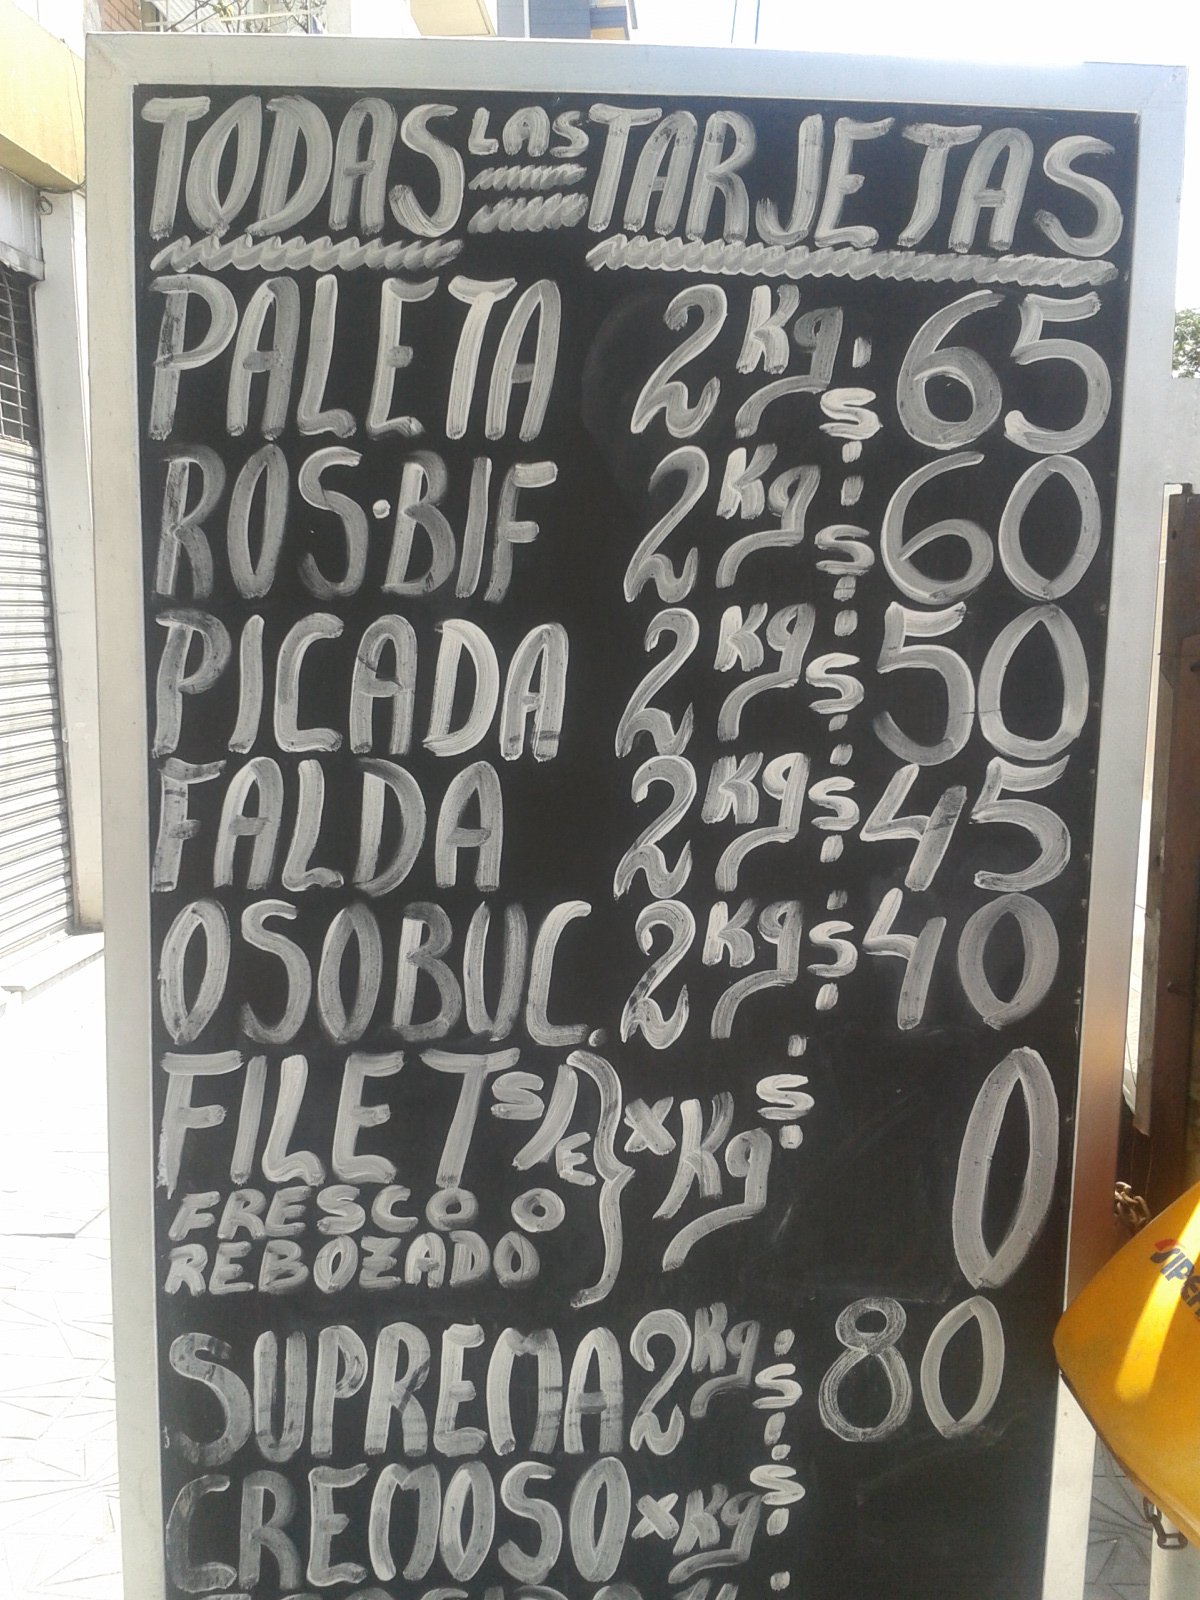 TODAS LAS TARJETAS
PALETA 2Kg $ 65
ROS·BIF 2Kg $ 60
PICADA 2Kg $ 50
FALDA 2Kg $ 45
OSOBUC. 2Kg $ 40
FILE T S/E } x Kg $ 0
FRESCO O
REBOZADO
SUPREMA 2Kg $ 80
CREMOSO x Kg $